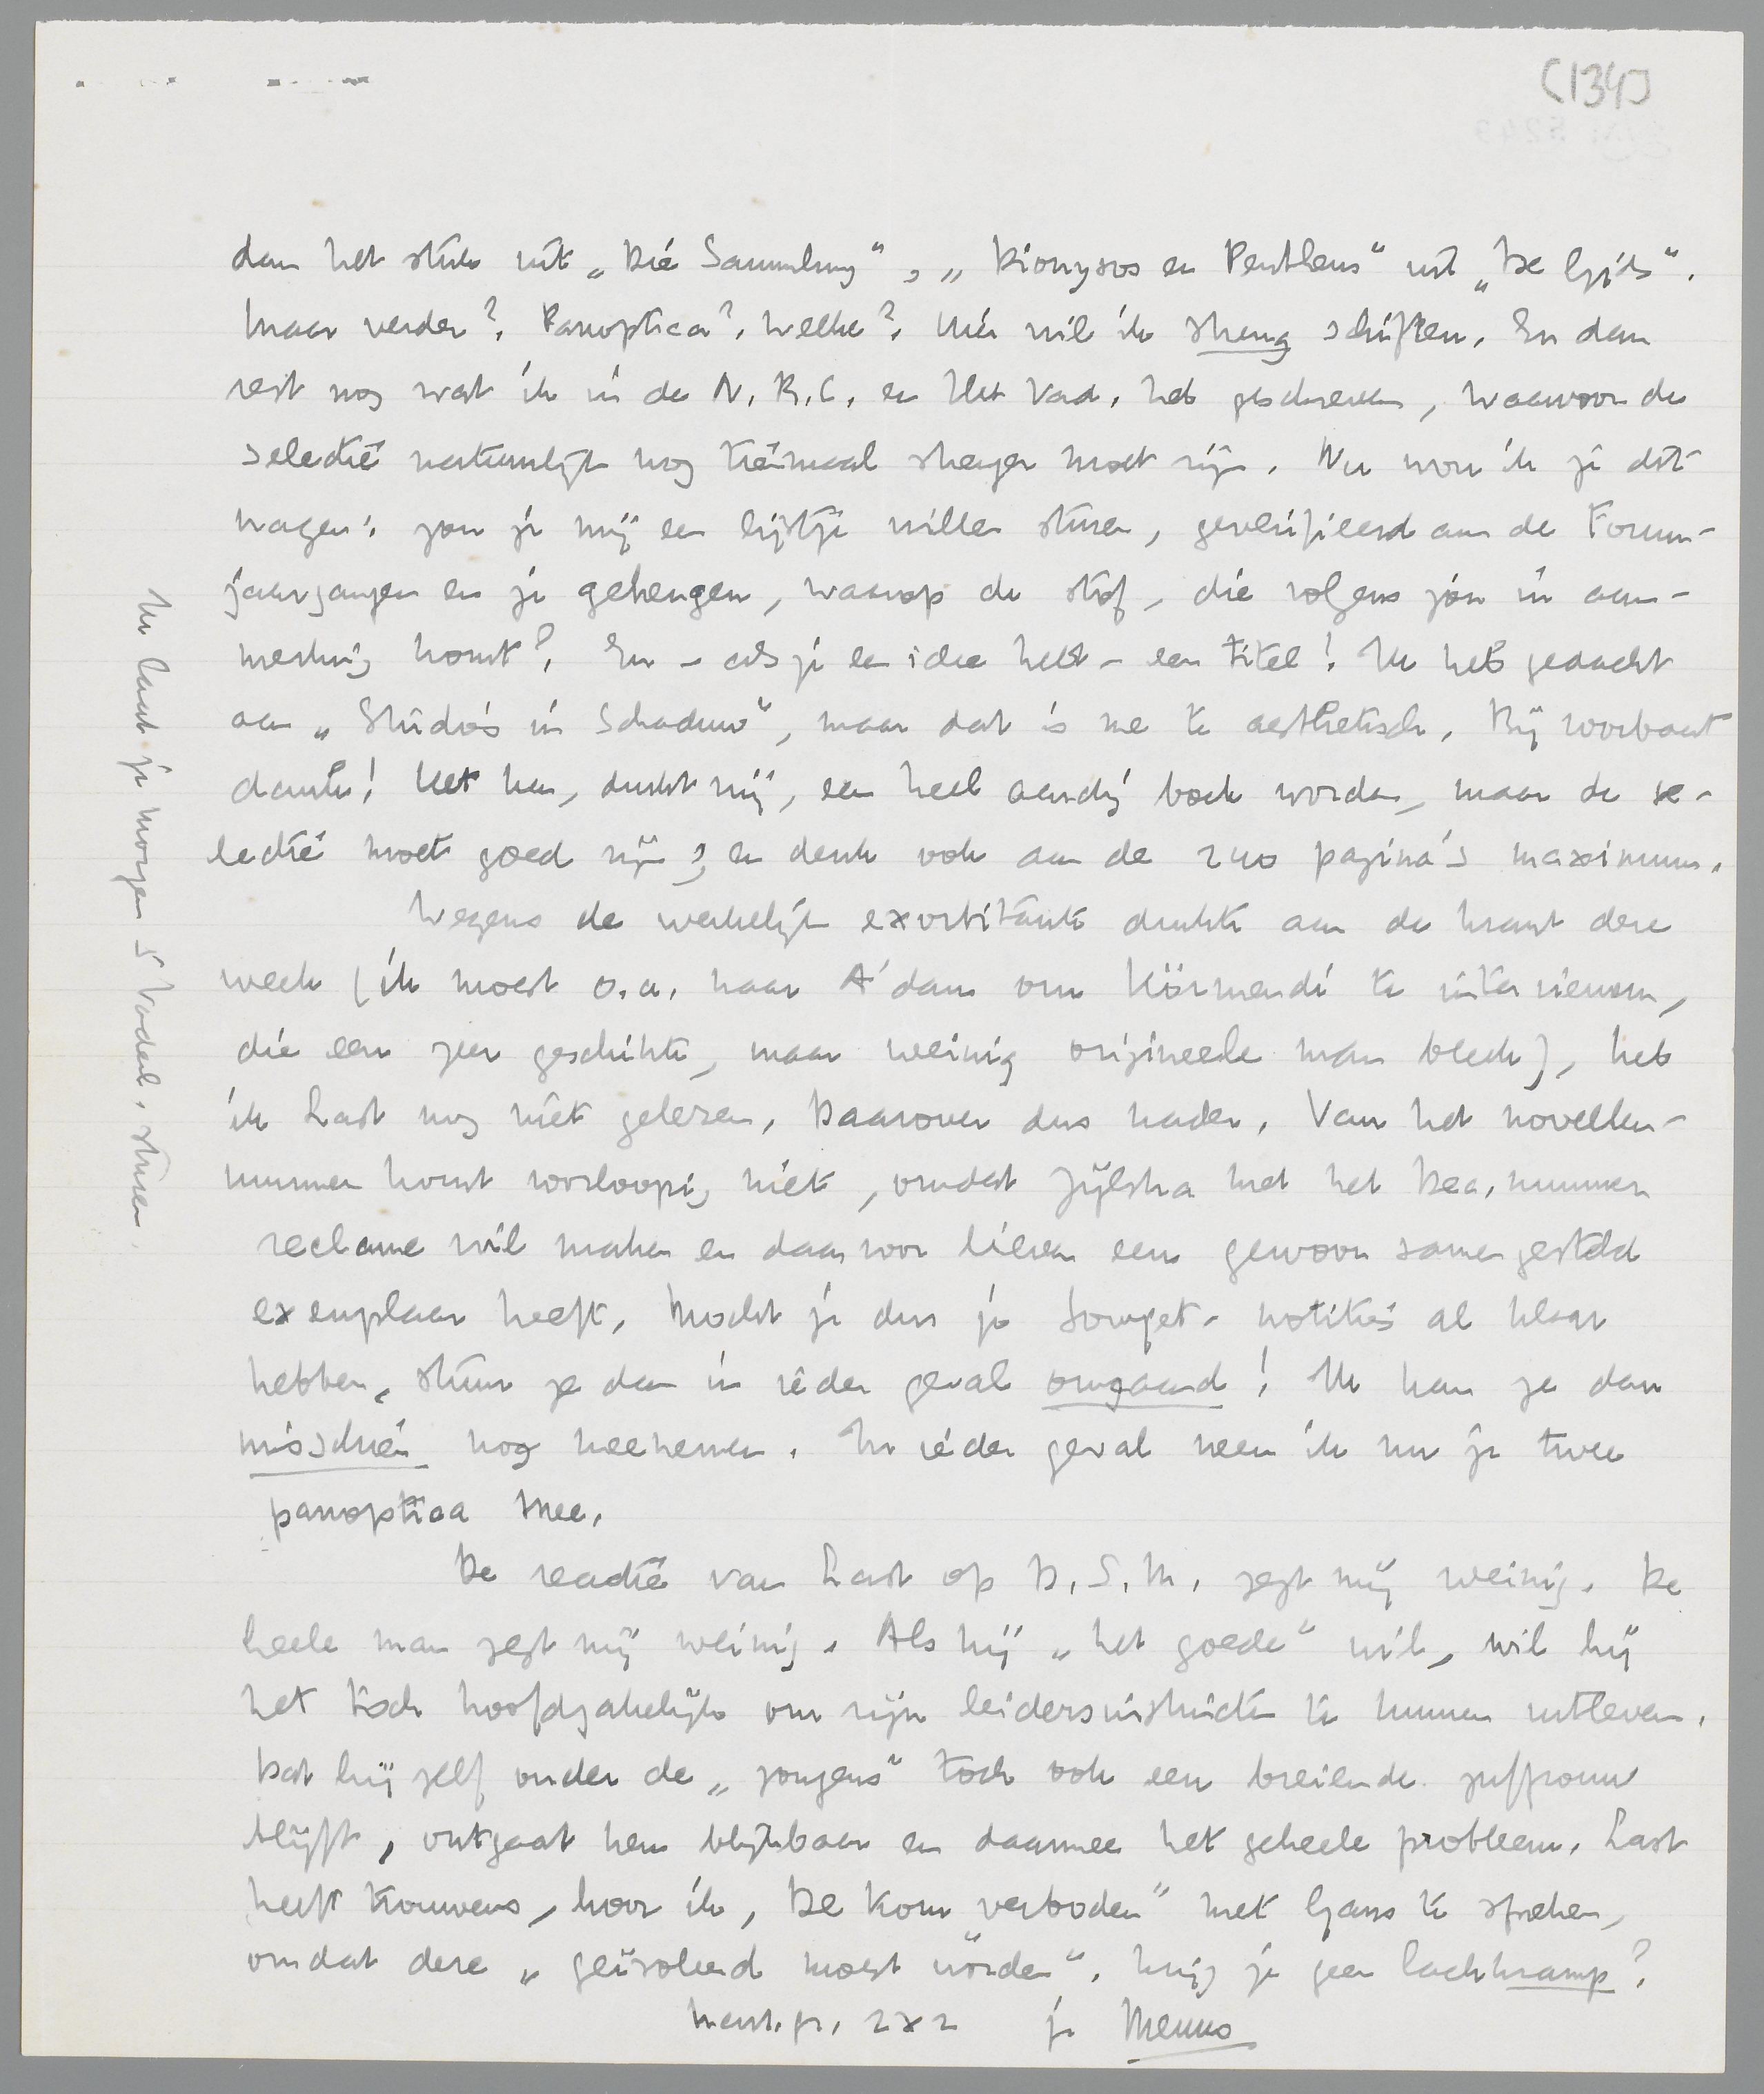 (134)
dan het stuk uit „Die Sammlung”, „Dionysos en Pentheus” uit „De Gids”.
Maar verder? Panoptica? Welke? Hier wil ik streng schiften. En dan
rest nog wat ik in de N.R.C. en Het Vad. heb geschreven, waarvoor de
selectie natuurlijk nog tienmaal strenger moet zijn. Nu wou ik je dit
vragen: zou je mij een lijstje willen sturen, geverifieerd aan de Forum-
jaargangen en je geheugen, waarop de stof, die volgens jou in aan-
merking komt? En – als je een idee hebt – een titel! Ik heb gedacht
aan „Studio's in Schaduw”, maar dat is me te aesthetisch. Bij voorbaat
dank! Het kan, dunkt mij, een heel aardig boek worden, maar de se-
lectie moet goed zijn; en denk ook aan de 240 pagina's maximum.
Wegens de werkelijk exorbitante drukte aan de krant deze
week (ik moest o.a. naar A'dam om Körmendi te interviewen,
die een zeer geschikte, maar weinig origineele man bleek), heb
ik Last nog niet gelezen. Daarover dus nader. Van het novellen-
nummer komt voorloopig niets, omdat Zijlstra met het Dec. nummer
reclame wil maken en daarvoor liever een gewoon samengesteld
exemplaar heeft. Mocht je dus je Sowjet-notities al klaar
hebben, stuur ze dan in ieder geval omgaand! Ik kan ze dan
misschien nog meenemen. In ieder geval neem ik nu je twee
panoptica mee.
De reactie van Last op D.S.M. zegt mij weinig. De
heele man zegt mij weinig. Als hij „het goede” wil, wil hij
het toch hoofdzakelijk om zijn leidersinstincten te kunnen uitleven.
Dat hij zelf onder de „jongens” toch ook een breiende juffrouw
blijft, ontgaat hem blijkbaar en daarmee het geheele probleem. Last
heeft trouwens, hoor ik, De Kom „verboden” met Gans te spreken,
omdat deze „geïsoleerd moest worden”. Krijg je geen lachkramp?
hart. gr. 2 x 2 je Menno
Ik laat je morgen 5 Vaderl. sturen.